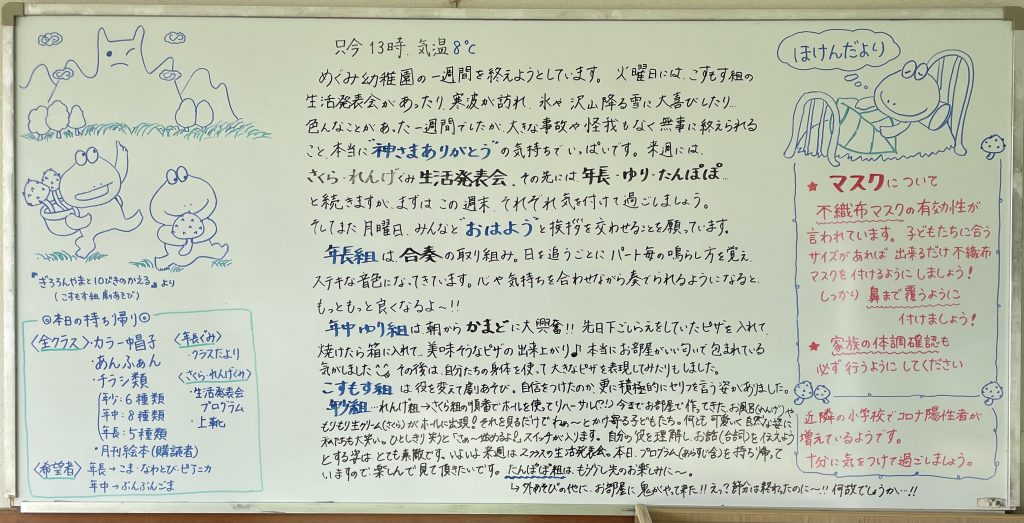 只今 13時、気温 8℃
めぐみ幼稚園の一週間を終えようとしています。火曜日には、こすもす組の
生活発表会があったり、寒波が訪れ、氷や沢山降る雪に大喜びしたり…
色んなことがあった一週間でしたが、大きな事故や怪我もなく無事に終えられる
こと、本当に"神さまありがとう"の気持ちでいっぱいです。来週には、
さくら・れんげぐみ 生活発表会、その先には、年長・ゆり・たんぽぽ…
と続きますが、まずはこの週末、それぞれ気を付けて過ごしましょう。
そしてまた月曜日、みんなと"おはよう"と挨拶を交わせることを願っています。
年長組は、合奏の取り組み。日を追うごとにパート毎の鳴らし方を覚え、
ステキな音色になってきています。心や気持ちを合わせながら奏でられるようになると、
もっともっと良くなるよ〜!!
年中ゆり組は朝からかまどに大興奮!! 先日下ごしらえをしていたピザを入れて、
焼けたら箱に入れて、美味そうなピザの出来上がり♪ 本当にお部屋がいい匂いで包まれている
気がしました。その後は、自分たちの身体を使って大きなピザを表現してみたりもしました。
こすもす組は、役を変えて劇あそび。自信をつけたのか、更に積極的にセリフを言う姿がありました。
年少組…れんげ組→さくら組の順番でホールを使ってリハーサル(?!) 今までお部屋で作ってきた、お風呂(れんげ)や
もりもり生クリーム(さくら)がホールに出現! それを見るだけでわぁ〜とかけ寄る子どもたち。何とも可愛く自然な姿に
私たちも大笑い。ひとしきり笑うと「さぁ〜始めるよ!」スイッチが入ります。自分の役を理解し、お話(台詞)を伝えよう
とする姿はとても素敵です。いよいよ来週は2クラスの生活発表会。本日、プログラム(あらすじ含)を持ち帰って
いますので楽しんで見て頂きたいです。たんぽぽ組は、もう少し先のお楽しみに〜。
↳外あそびの他に…お部屋に鬼がやって来た!! えっ?節分は終わったのに〜!! 何故でしょうか…!!
『ぎろろんやまと10ぴきのかえる』より
(こすもす組 劇あそび)
◎本日の持ち帰り◎
〈全クラス〉・カラー帽子
・あんふぁん
・チラシ類
年少:6種類
年中:8種類
年長:5種類
・月刊絵本(購読者)
〈年長ぐみ〉
・クラスだより
〈さくら・れんげぐみ〉
・生活発表会
プログラム
・上靴
〈希望者〉年長→こま・なわとび・ピアニカ
年中→ぶんぶんごま
ほけんだより
★ マスクについて
不織布マスクの有効性が
言われています。子どもたちに合う
サイズがあれば出来るだけ不織布
マスクを付けるようにしましょう!
しっかり鼻まで覆うように
付けましょう!
★ 家族の体調確認も
必ず行うようにしてください
近隣の小学校でコロナ陽性者が
増えているようです。
十分に気をつけて過ごしましょう。